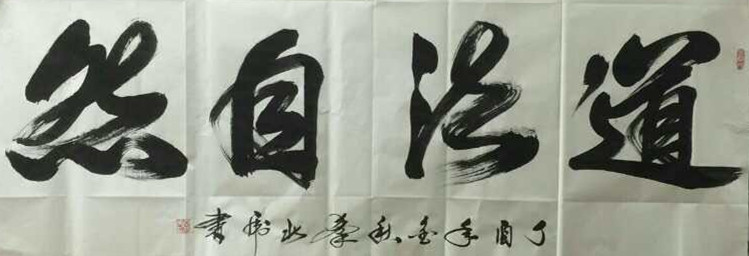 道法自然
丁酉年金秋 書